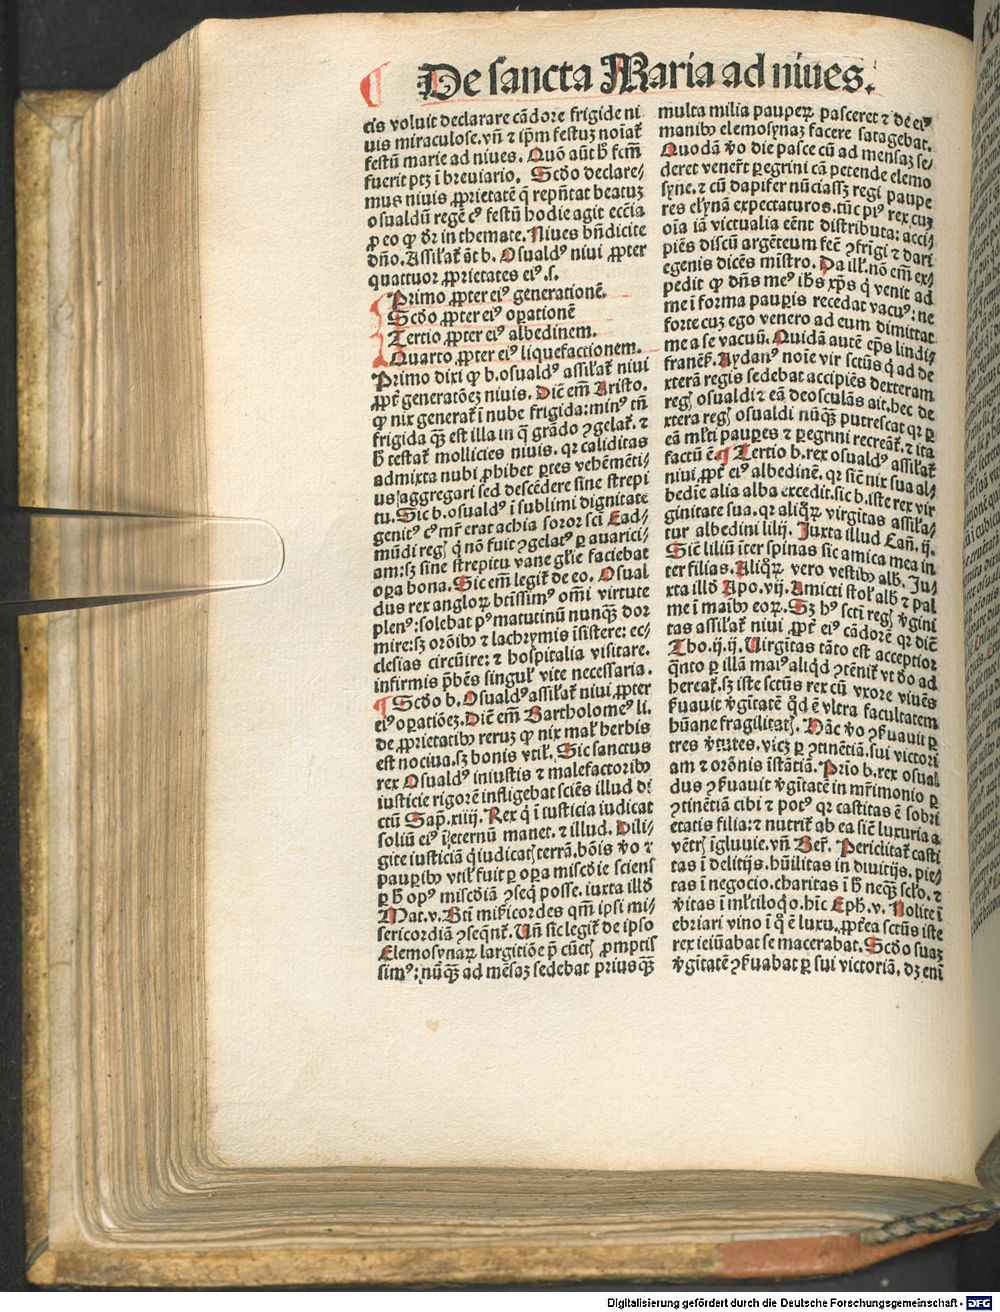 De sancta Maria ad niues.
cis voluit declarare cādore frigide ni
uis miraculose. vñ ⁊ ip̄m festuꝫ noīat͛
festū marie ad niues. Quō aūt h̄ fcm̄
fuerit ptꝫ ī breuiario. Scd̄o declare/
mus niuis ꝓprietatē q̄ repn̄tat beatuꝫ
osualdū regē cꝰ festū hodie agit ecc̄ia
ꝓ eo ꝙ dr̄ in themate. Niues bn̄dicite
dn̄o. Assilat͛ āt b. Osualdꝰ niui ꝓpter
quattuor ꝓprietates eiꝰ .s.
Primo ꝓpter eiꝰ generationē.
Scd̄o ꝓpter eiꝰ oꝑationē
Tertio ꝓpter eiꝰ albedinem.
Quarto ꝓpter eiꝰ liquefactionem.
Primo dixi ꝙ b. osualdꝰ assilat͛ niui
ꝓpt̄ generatōeꝫ niuis. Dic̄ em̄ Aristo.
ꝙ nix generat͛ ī nube frigida: minꝰ tn̄
frigida qꝫ̄ est illa in q̄ grādo ꝯgelat͛. ⁊
h̄ testat͛ mollicies niuis. qꝛ caliditas
admixta nubi ꝓhibet ꝑtes vehēmēti/
us aggregari sed descēdere sine strepi
tu. Sic b. osualdꝰ ī sublimi dignitate
genitꝰ cꝰ mr̄ erat achia soror sci Ead/
mūdi regꝭ q̄ nō fuit ꝯgelatꝰ ꝑ auarici/
am: sꝫ sine strepitu vane gl̄ie faciebat
oꝑa bona. Sic em̄ legit͛ de eo. Osual
dus rex angloꝝ btīssimꝰ om̄i virtute
plenꝰ: solebat pꝰ matutinū nunqꝫ̄ dor
mire: sꝫ orōibꝫ ⁊ lachrymis īsistere: ec/
clesias circūire: ⁊ hospitalia visitare.
infirmis p̄bēs singul̓ vite necessaria.
Scd̄o b. Osualdꝰ assilat͛ niui ꝓpter
eiꝰ oꝑatiōeꝫ. Dic̄ em̄ Bartholomeꝰ li.
de ꝓprietatibꝫ reruꝫ ꝙ nix mal̓ herbis
est nociua. sꝫ bonis vtil̓. Sic sanctus
rex Osualdꝰ iniustis ⁊ malefactoribꝫ
iusticie rigorē infligebat sciēs illud di
ctū Sap. xiiij. Rex q̄ ī iusticia iudicat
soliū eiꝰ ī eternū manet. ⁊ illud. Dili/
gite iusticiā q̄ iudicatꝭ terrā. bōis v̄o ⁊
pauꝑibꝫ vtil̓ fuit ꝑ oꝑa misc̄die sciens
ꝑ h̄ opꝰ misc̄diā ꝯseq̄ posse. iuxta illd̄
Mat. v. Bti mīricordes qm̄ ipsi mi/
sericordiā ꝯseqn̄t͛. Vñ sic legit͛ de ipso
Elemosynaꝝ largitiōe p̄ cūctꝭ ꝓmptis
simꝰ: nūqꝫ̄ ad mēsaꝫ sedebat priusqꝫ̄
multa milia pauperꝝ pasceret ⁊ de eiꝰ
manibꝫ elemosynaꝫ facere satagebat.
Quodā v̄o die pasce cū ad mensaꝫ se/
deret venerūt ꝑegrini cā petende elemo
syne. ⁊ cū dapifer nūciassꝫ regi paupe
res elynā expectaturos. tūc piꝰ rex cuꝫ
oīa iā victualia eēnt distributa: acci/
piēs discū argēteum fec̄ ꝯfrīgi ⁊ dari
egenis dicēs mīstro. Da ill̓. nō em̄ ex/
pedit ꝙ dn̄s meꝰ ihs xp̄s q̄ venit ad
me ī forma pauꝑis recedat vacuꝰ: ne
forte cuꝫ ego venero ad eum dimittat
me a se vacuū. Quidā autē ep̄s lindis/
franeń. Aydanꝰ noīe vir sctūs q̄ ad de
xterā regis sedebat accipiēs dexteram
regꝭ osualdi ⁊ eā deosculās ait. hec de
xtera regꝭ osualdi nūqꝫ̄ putrescat qꝛ ꝑ
eā ml̄ti pauꝑes ⁊ ꝑegrini recreāt͛. ⁊ ita
factū ē. Tertio b. rex osualdꝰ assilat͛
niui ꝓpt̄ eiꝰ albedinē. qꝛ sic̄ nix sua al/
bedīe alia alba excedit. sic b. iste rex vir
ginitate sua. qꝛ aliqꝝ virgitas assila/
tur albedini lilij. Juxta illud Can̄. ij.
Sic̄ liliū īter spinas sic amica mea in
ter filias. Aliqꝝ vero vestibꝫ alb̄. Ju/
xta illd̄ Apo. vij. Amicti stol̓ alb̄ ⁊ pal
me ī maibꝫ eoꝝ. Sꝫ hꝰ scti regꝭ v̄gini
tas assilat͛ niui ꝓpt̄ eiꝰ cādorē qꝛ dic̄
Tho. ij. ij. Virgītas tāto est acceptior
q̄nto ꝑ illā maiꝰ aliqd̄ ꝯtēnit͛ vt dō ad
hereat͛. sꝫ iste sctūs rex cū vxore viuēs
ẜuauit v̄gītatē qd̄ ē vltra facultatem
hūane fragilitatꝭ. Hāc v̄o ꝯẜuauit ꝑ
tres v̄tutes. vicꝫ ꝑ ꝯtinētiā. sui victori
am ⁊ orōnis īstātiā. Prīo b. rex osual
dus ꝯẜuauit v̄gītatē in mr̄imonio ꝑ
ꝯtinētiā cibi ⁊ potꝰ qꝛ castitas ē sobri
etatis filia: ⁊ nutrit͛ ab ea sic̄ luxuria a
vētrꝭ īgluuie. vñ Ber̄. Periclitat͛ casti
tas ī delitijs. hūilitas in diuitijs. pie/
tas ī negocio. charitas ī h̄ neqꝫ̄ sclo. ⁊
v̄itas ī ml̄tiloqo. hic̄ Eph̄. v. Nolite ī
ebriari vino ī q̄ ē luxu. ꝓpt̄ea sctūs iste
rex ieiūabat se macerabat. Scd̄o suaꝫ
v̄gītatē ꝯẜuabat ꝑ sui victoriā. dꝫ enī
Digitalisierung gefördert durch die Deutsche Forschungsgemeinschaft - DFG